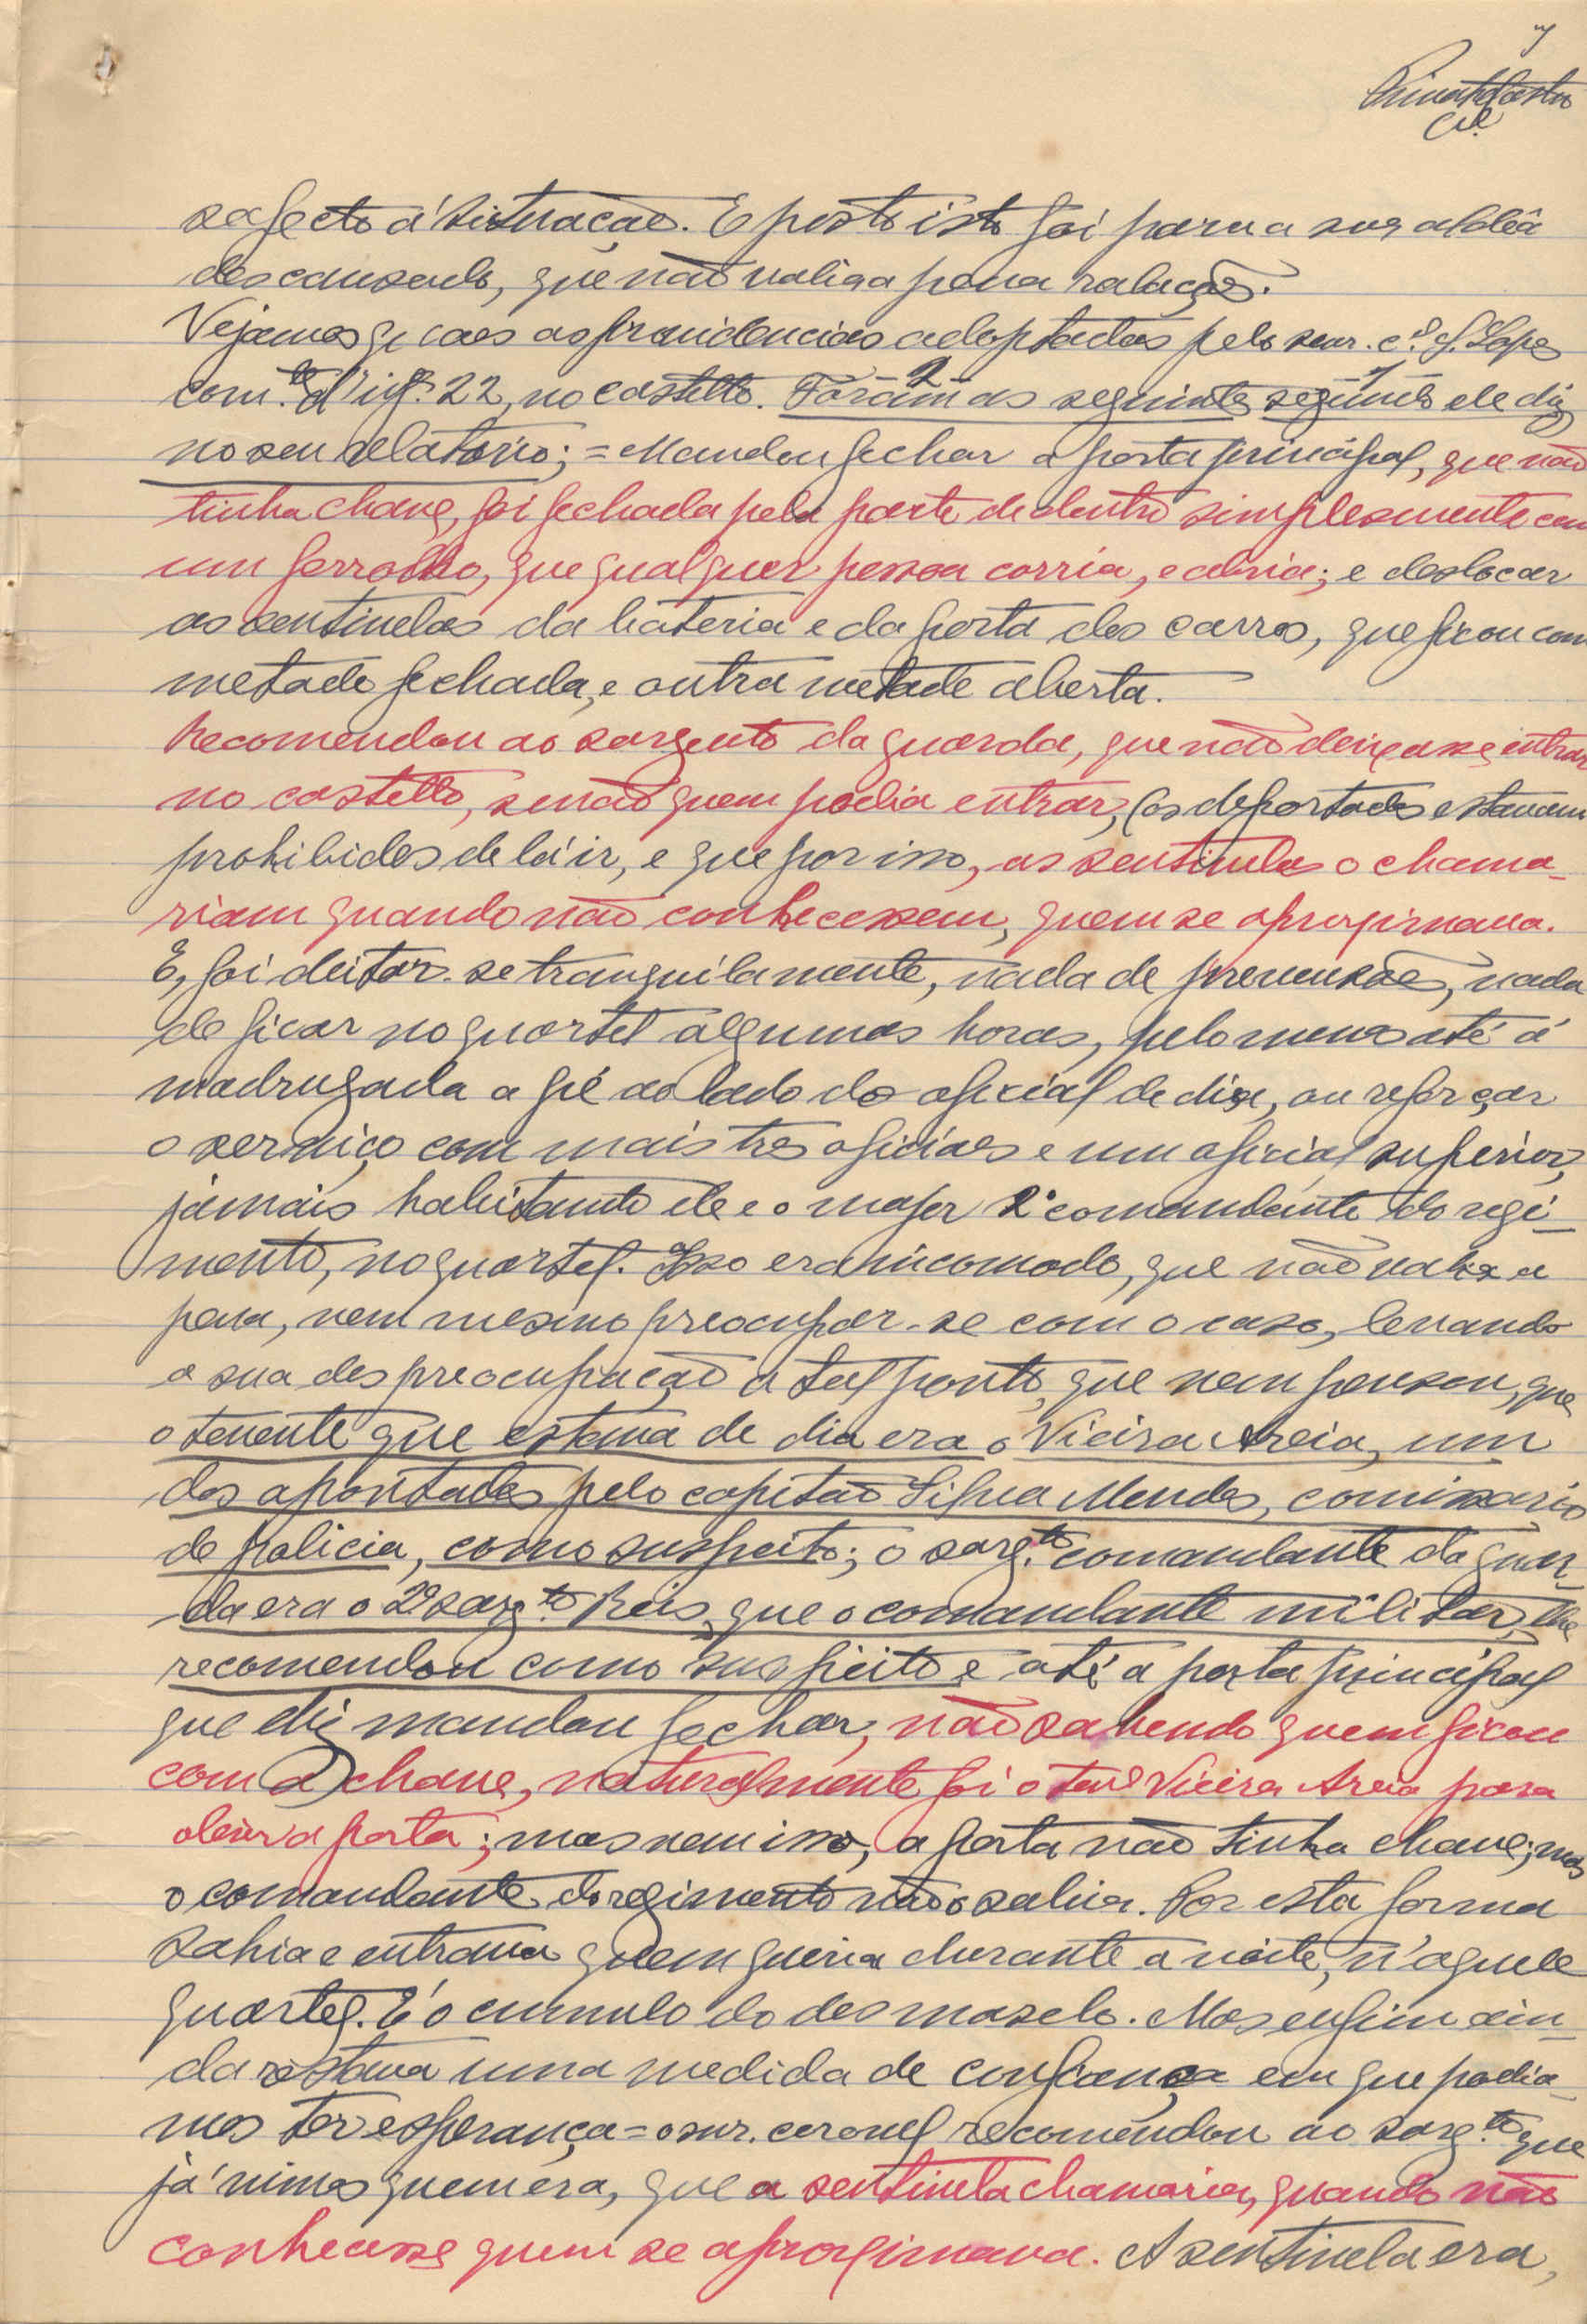 7
safecto á situação. E posto isto foi para a sua aldeâ
descansado, que não valia a pena ralações.
Vejamos quaes as providencias adoptadas pelo snr. c.el J. Lopes
com.te d'inf.ª 22, no castello. Foram as seguintes segundo ele diz
no seu relatorio; = Mandou fechar a porta principal, que não
tinha chave, foi fechada pela parte de dentro simplesmente com
um ferrolho, que qualquer pessoa corria, e abria; e deslocar
as sentinelas da bateria e da porta dos carros, que ficou com
metade fechada, e outra metade aberta.
Recomendou ao sargento da guarda, que não deixasse entrar
no castello, senão quem podia entrar, (os deportados estavam
prohibidos de lá ir, e que por isso, as sentinelas o chama-
riam quando não conhecessem, quem se aproximava.
E, foi deitar-se tranquilamente, nada de prevensão, nada
de ficar no quartel algumas horas, pelo menos até á
madrugada a pé ao lado do oficial de dia, ou reforçar
o serviço com mais tres oficiaes e um oficial superior,
jámais habitando ele e o major 2º comandante do regi-
mento, no quartel. Isso era incomodo, que não valia a
pena, nem mesmo preocupar-se com o caso, levando
a sua despreocupação a tal ponto, que nem pensou, que
o tenente que estava de dia era o Vieira Areia, um
dos apontados pelo capitão Silva Mendes, comissario
de policia, como suspeito; o sarg.to comandante da guar-
da era o 2º sarg.to Reis, que o comandante militar, lhe
recomendou como suspeito e até a porta principal
que diz mandou fechar, não sabendo quem ficou
com a chave, naturalmente foi o ten.e Vieira Areia para
abrir a porta; mas nem isso, a porta não tinha chave; mas
o comandante do regimento não o sabia. Por esta forma
sahia e entrava quem queria durante a noite, n'aquele
quartel. E' o cumulo do desmaselo. Mas enfim ain-
da restava uma medida de confiança em que podia-
mos ter esperança = o snr. coronel recomendou ao sarg.to que
já vimos quem era, que a sentinela chamaria, quando não
conhecesse quem se aproximava. A sentinela era,